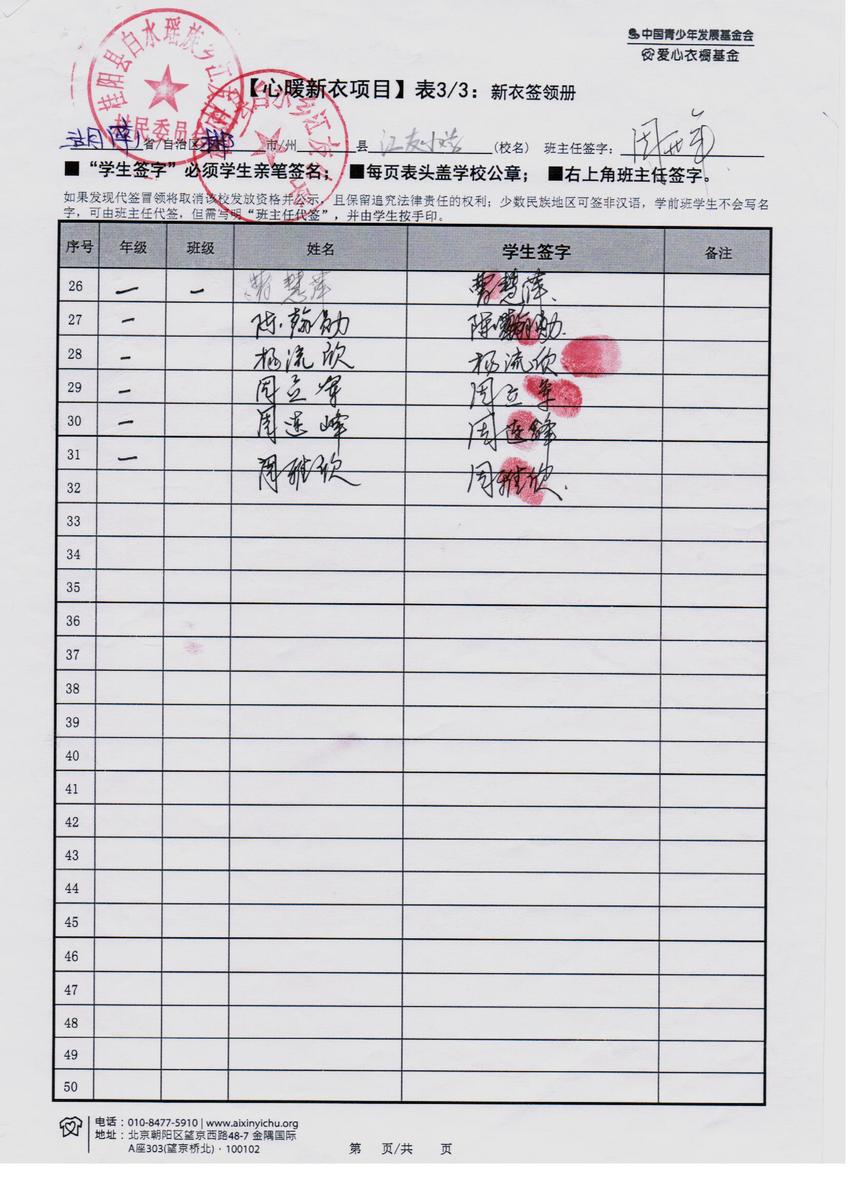 中国青少年发展基金会
爱心衣橱基金
桂阳县白水瑶族乡江友
【心暖新衣项目】表3/3：新衣签领册
湖南省/自治区 郴 市/州 县 江友小学 (校名) 班主任签字：周
■ “学生签字”必须学生亲笔签名； ■每页表头盖学校公章； ■右上角班主任签字。
如果发现代签冒领将取消该校发放资格并公示，且保留追究法律责任的权利；少数民族地区可签非汉语，学前班学生不会写名
字，可由班主任代签，但需写明“班主任代签”，并由学生按手印。
序号 年级 班级 姓名 学生签字 备注
26 一 一 曹慧萍 曹慧萍
27 一 陈翰勋 陈翰勋
28 一 杨流欣 杨流欣
29 一 周立军 周立军
30 一 周连峰 周连锋
31 一 周雅欣 周雅欣
32
33
34
35
36
37
38
39
40
41
42
43
44
45
46
47
48
49
50
电话：010-8477-5910 | www.aixinyichu.org
地址：北京朝阳区望京西路48-7 金隅国际
A座303(望京桥北)·100102
第 页/共 页